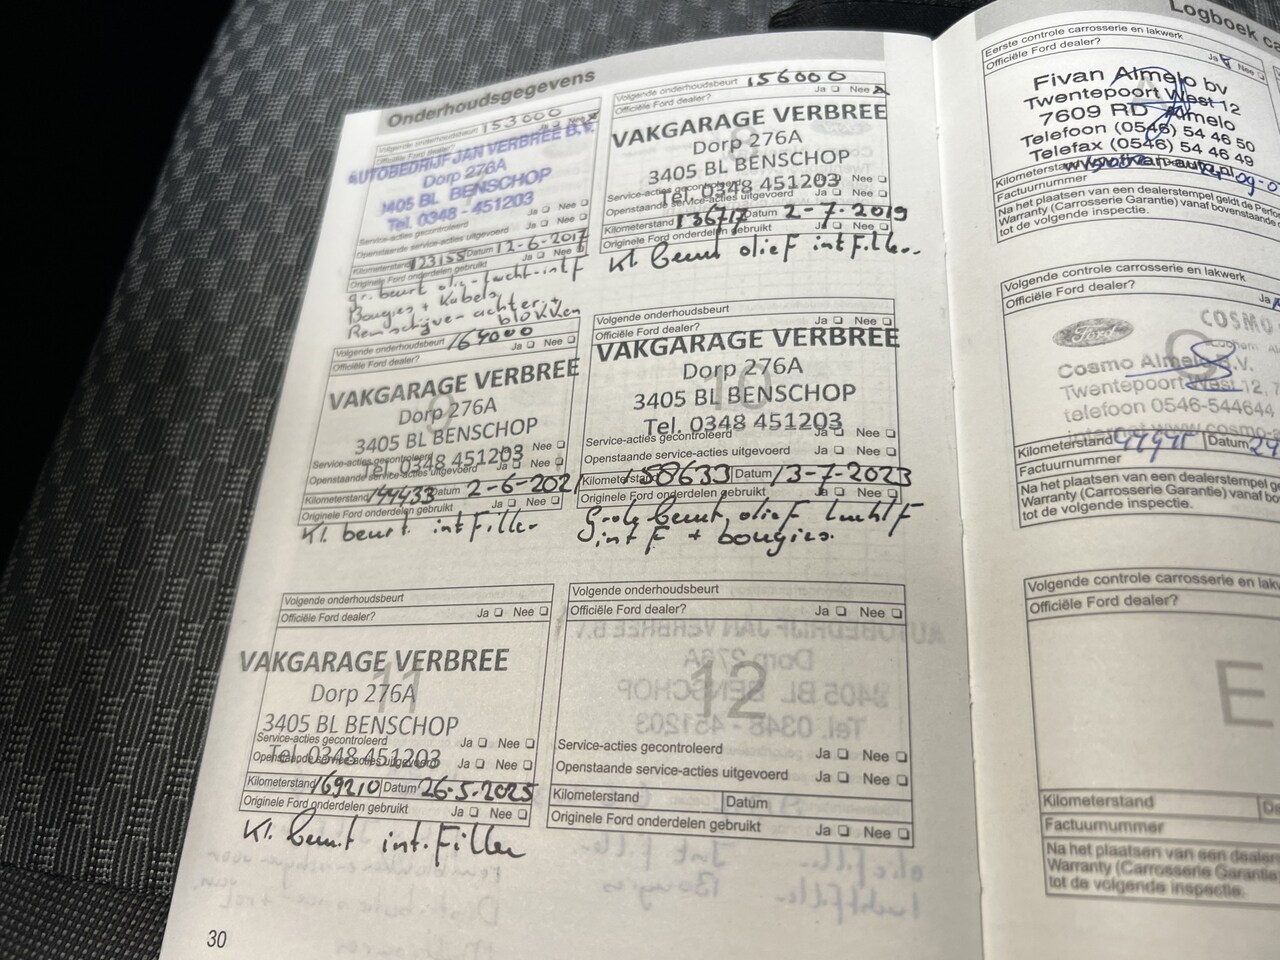 Onderhoudsgegevens
Volgende onderhoudsbeurt 153000
Officiële Ford dealer? Ja Nee
AUTOBEDRIJF JAN VERBREE B.V.
Dorp 276A
3405 BL BENSCHOP
Tel. 0348 - 451203
Service-acties gecontroleerd Ja Nee
Openstaande service-acties uitgevoerd Ja Nee
Kilometerstand 123155 Datum 12-6-2017
Originele Ford onderdelen gebruikt Ja Nee
gr. beurt olie-lucht-intf
Bougies + Kabels
Remschijven achter +
blokken
Volgende onderhoudsbeurt 156000
Officiële Ford dealer? Ja Nee
VAKGARAGE VERBREE
Dorp 276A
3405 BL BENSCHOP
Tel. 0348 451203
Service-acties gecontroleerd Ja Nee
Openstaande service-acties uitgevoerd Ja Nee
Kilometerstand 136717 Datum 2-7-2019
Originele Ford onderdelen gebruikt Ja Nee
Kl. beurt olief intfiller.
Volgende onderhoudsbeurt 164000
Officiële Ford dealer? Ja Nee
9
VAKGARAGE VERBREE
Dorp 276A
3405 BL BENSCHOP
Tel. 0348 451203
Service-acties gecontroleerd Nee
Openstaande service-acties uitgevoerd Ja Nee
Kilometerstand 144433 Datum 2-6-2021
Originele Ford onderdelen gebruikt Ja Nee
Kl. beurt. intfiller
Volgende onderhoudsbeurt
Officiële Ford dealer? Ja Nee
10
VAKGARAGE VERBREE
Dorp 276A
3405 BL BENSCHOP
Tel. 0348 451203
Service-acties gecontroleerd Ja Nee
Openstaande service-acties uitgevoerd Ja Nee
Kilometerstand 158633 Datum 13-7-2023
Originele Ford onderdelen gebruikt Ja Nee
Grote beurt, olief luchtf
intf + bougies.
Volgende onderhoudsbeurt
Officiële Ford dealer? Ja Nee
11
VAKGARAGE VERBREE
Dorp 276A
3405 BL BENSCHOP
Tel. 0348 451203
Service-acties gecontroleerd Ja Nee
Openstaande service-acties uitgevoerd Ja Nee
Kilometerstand 169210 Datum 26-5-2025
Originele Ford onderdelen gebruikt Ja Nee
Kl. beurt int.filler
Volgende onderhoudsbeurt
Officiële Ford dealer? Ja Nee
12
Service-acties gecontroleerd Ja Nee
Openstaande service-acties uitgevoerd Ja Nee
Kilometerstand Datum
Originele Ford onderdelen gebruikt Ja Nee
30
Logboek ca
Eerste controle carrosserie en lakwerk
Officiële Ford dealer? Ja Nee
Fivan Almelo bv
Twentepoort West 12
7609 RD Almelo
Telefoon (0546) 54 46 50
Telefax (0546) 54 46 49
Kilometerstand
Factuurnummer
Na het plaatsen van een dealerstempel geldt de Perfo
Warranty (Carrosserie Garantie) vanaf bovenstaande
tot de volgende inspectie.
Volgende controle carrosserie en lakwerk
Officiële Ford dealer? Ja
Ford
COSMO
Cosmo Almelo B.V.
Twentepoort West 12, 7
telefoon 0546-544644
Kilometerstand Datum
Factuurnummer
Na het plaatsen van een dealerstempel ge
Warranty (Carrosserie Garantie) vanaf bo
tot de volgende inspectie.
Volgende controle carrosserie en lakw
Officiële Ford dealer?
E
Kilometerstand Da
Factuurnummer
Na het plaatsen van een dealer
Warranty (Carrosserie Garantie)
tot de volgende inspectie.